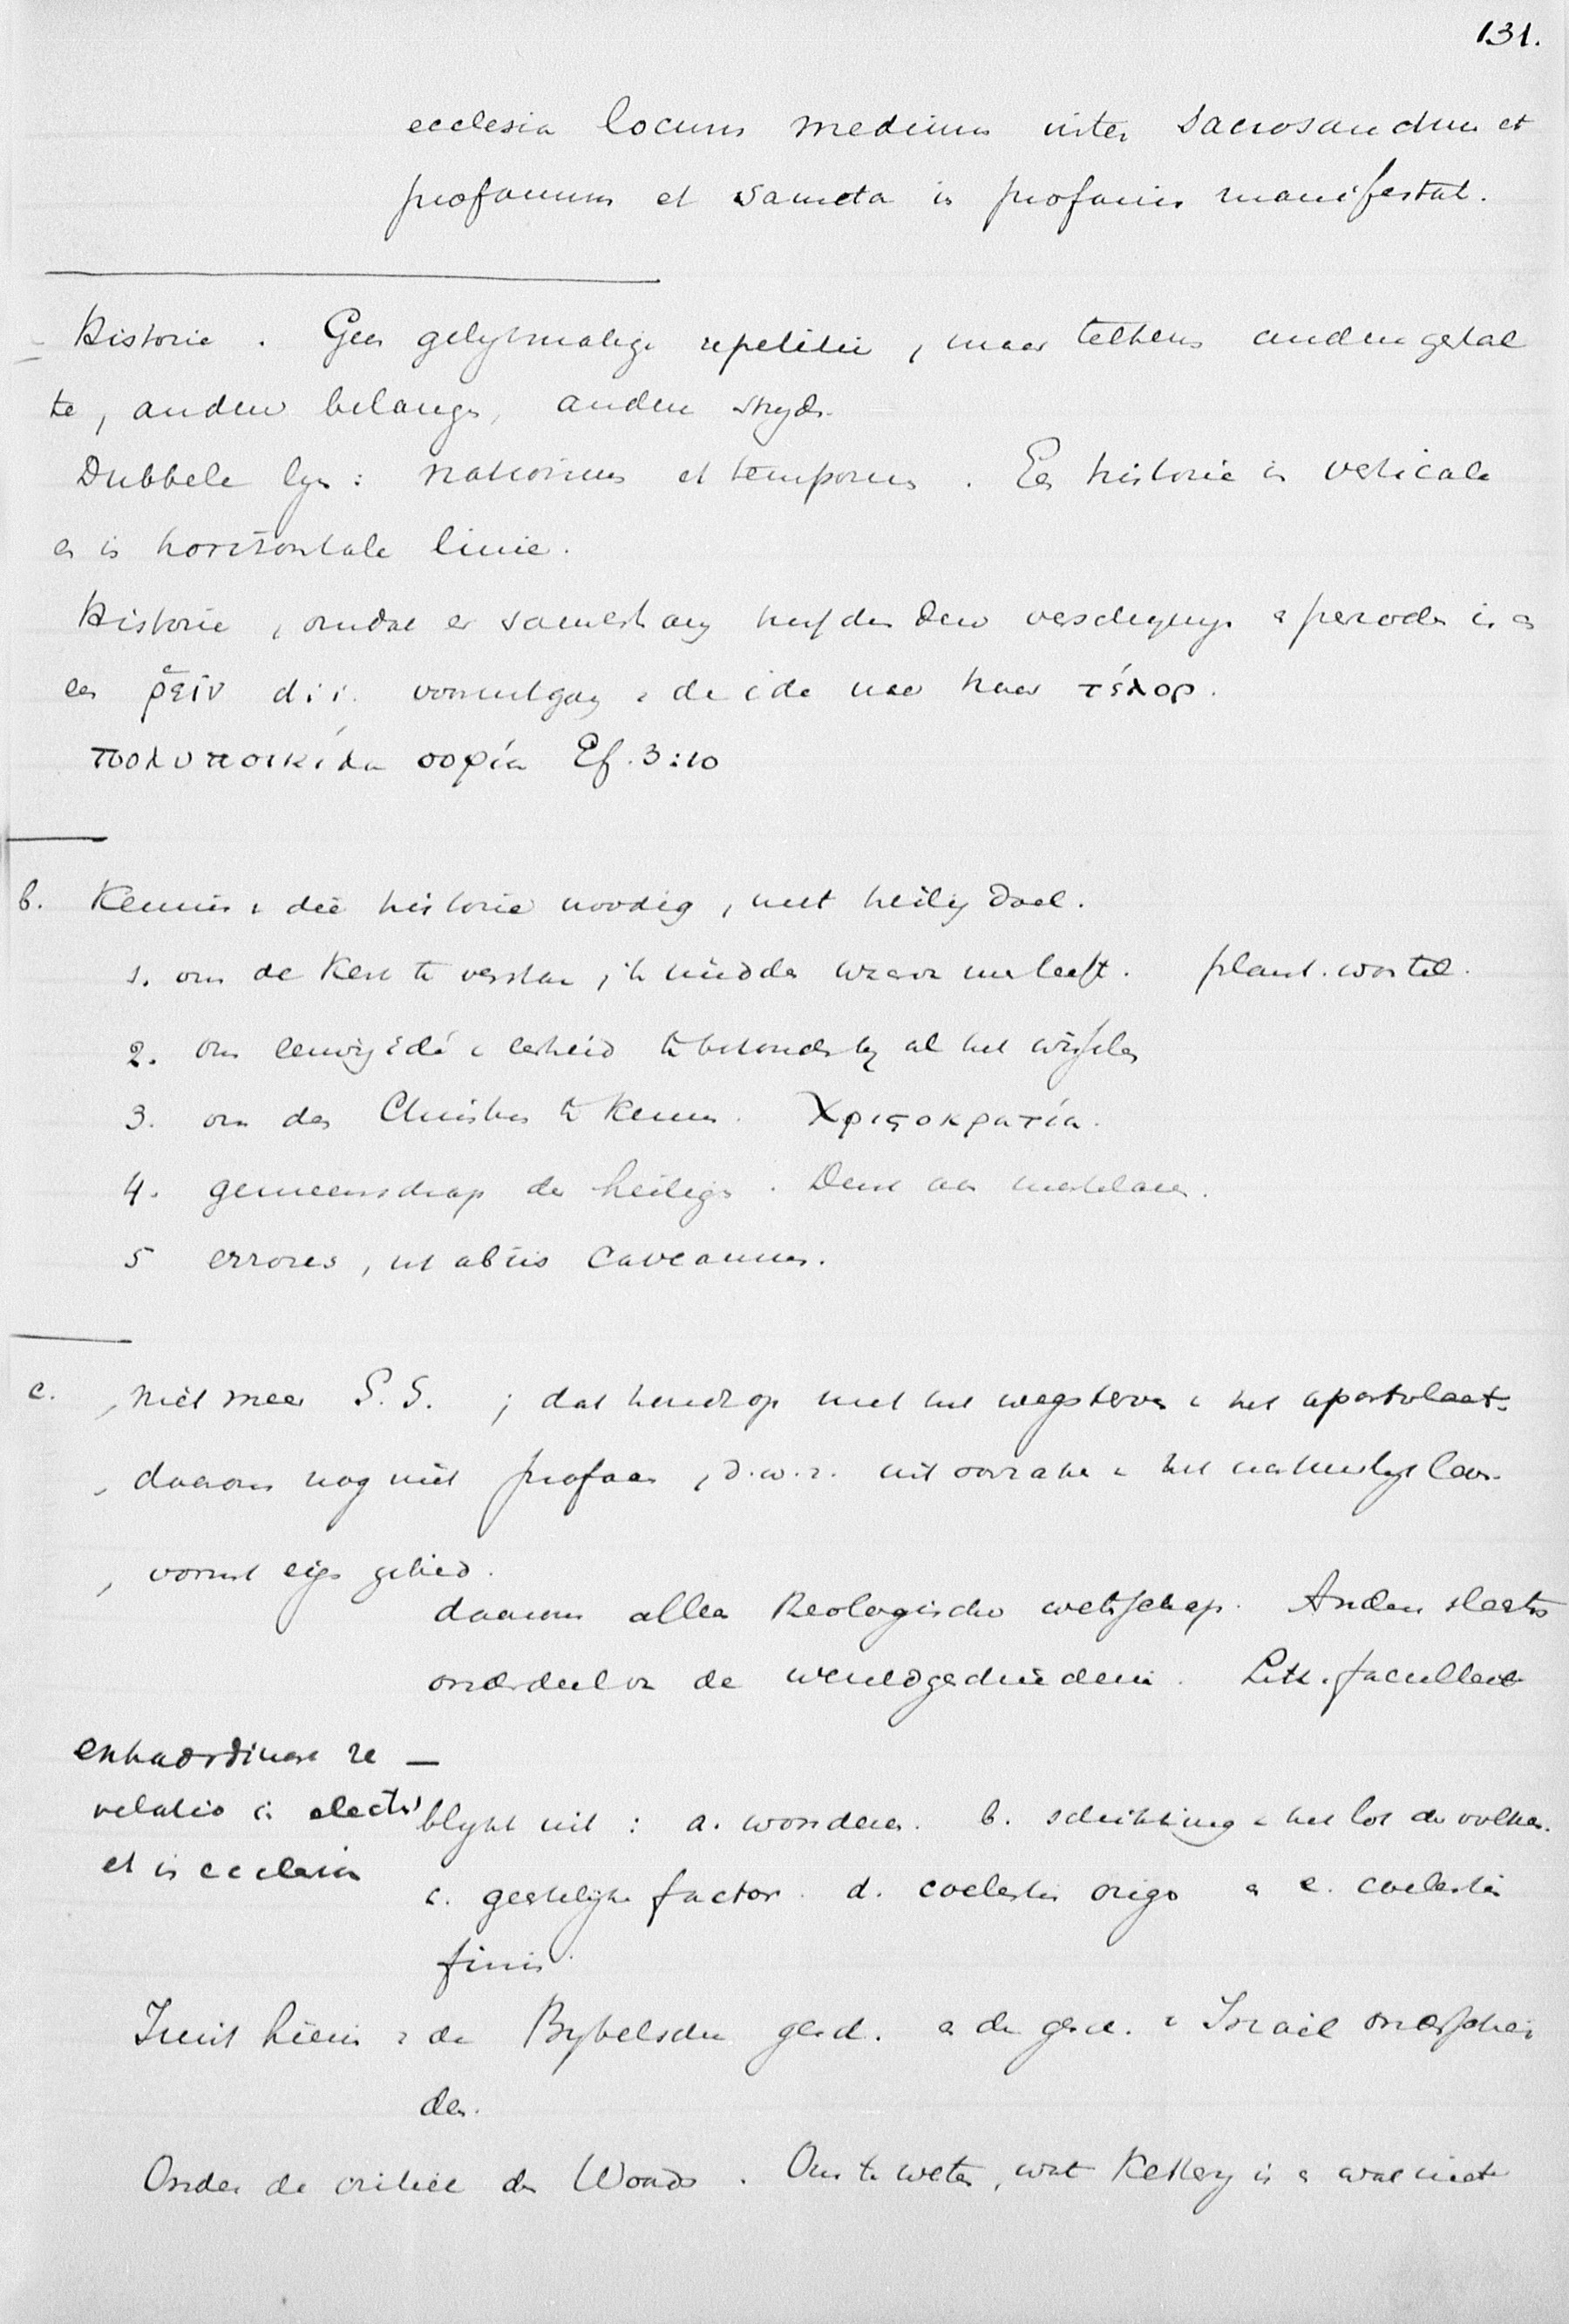 131.
ecclesia locum medium inter sacrosanctum et
profanum et sancta in profanis manifestat.
Historie. Geen gelykmatige repetitie, maar telkens andere gestal
te, andere belangen, andere stryd.
Dubbele lyn: nationum et temporum. Een historie in verticale
en in horizontale linie.
Historie, omdat er samenhang tusschen deze verschynsn. en perioden is en
een ῥεῖν d.i. vooruitgang v de idee naar haar τέλος.
πολυποικίλα σοφία Ef. 3:10
b. Kennis v die historie noodig, met heilig doel.
1. om de Kerk te verstaan, in midden waarvan men leeft. plant. wortel.
2. om eenwig idé v eenheid te bewonderen by al het wisselen
3. om den Christus te kennen. Χριςοκρατία.
4. gemeenschap der heiligen. Denk aan martelaren.
5 errores, ut ab iis caveamus.
c. , niet meer S.S. ; dat houdt op met het wegsterven v het apostolaat.
, daarom nog niet profaan, d.w.z. uit oorzaken v het natuurlyk leven.
, vormt eigen gebied.
daarom alleen theologische wetschap. Anders slechts
onderdeel van de wereldgeschiedenis. Litt. faculteit
extraordinaria re —
velatio in electis
et in ecclesia
blykt uit: a. wonderen. b. schikking v het lot der volken.
c. geestelyke factor. d. coelestis origo en e. coelestis
finis.
Juist hierin v de Bybelsche gesch. en de gesch. v Israel onderschei
den.
Onder de critiek des Woords. Om te weten, wat Kettery is en wat niet